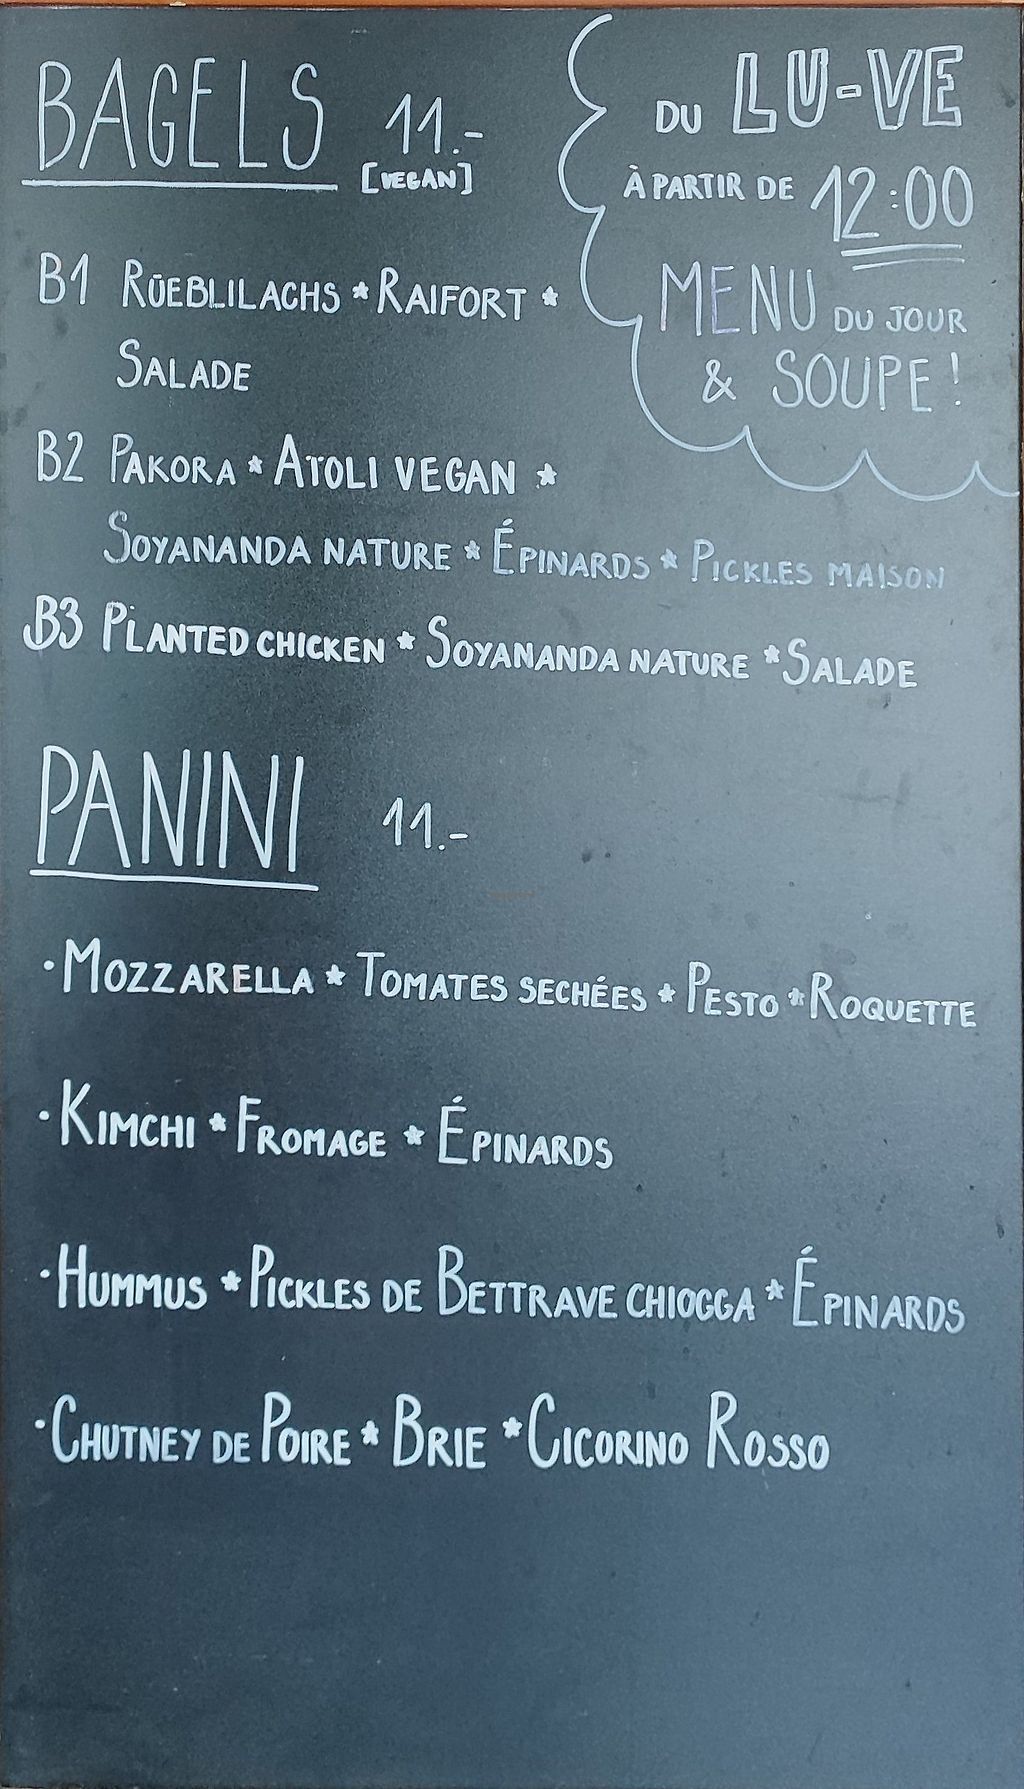 BAGELS 11.-
[VEGAN]
DU LU-VE
À PARTIR DE 12:00
MENU DU JOUR
& SOUPE!
B1 RÜEBLILACHS * RAIFORT *
SALADE
B2 PAKORA * AÏOLI VEGAN *
SOYANANDA NATURE * ÉPINARDS * PICKLES MAISON
B3 PLANTED CHICKEN * SOYANANDA NATURE * SALADE
PANINI 11.-
· MOZZARELLA * TOMATES SECHÉES * PESTO * ROQUETTE
· KIMCHI * FROMAGE * ÉPINARDS
· HUMMUS * PICKLES DE BETTRAVE CHIOGGA * ÉPINARDS
· CHUTNEY DE POIRE * BRIE * CICORINO ROSSO